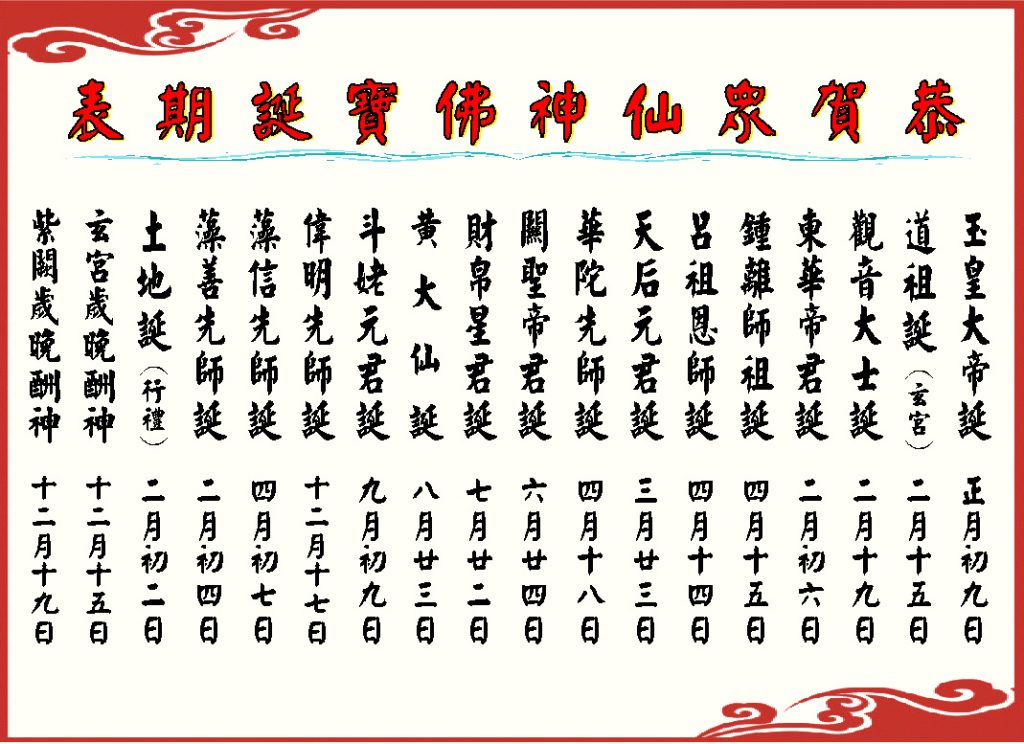 恭賀眾仙神佛寶誕期表
玉皇大帝誕 正月初九日
道祖誕（玄宮） 二月十五日
觀音大士誕 二月十九日
東華帝君誕 二月初六日
鍾離師祖誕 四月十五日
呂祖恩師誕 四月十四日
天后元君誕 三月廿三日
華陀先師誕 四月十八日
關聖帝君誕 六月廿四日
財帛星君誕 七月廿二日
黃大仙誕 八月廿三日
斗姥元君誕 九月初九日
偉明先師誕 十二月十七日
藻信先師誕 四月初七日
藻善先師誕 二月初四日
土地誕（行禮） 二月初二日
玄宮歲晚酬神 十二月十五日
紫闕歲晚酬神 十二月十九日